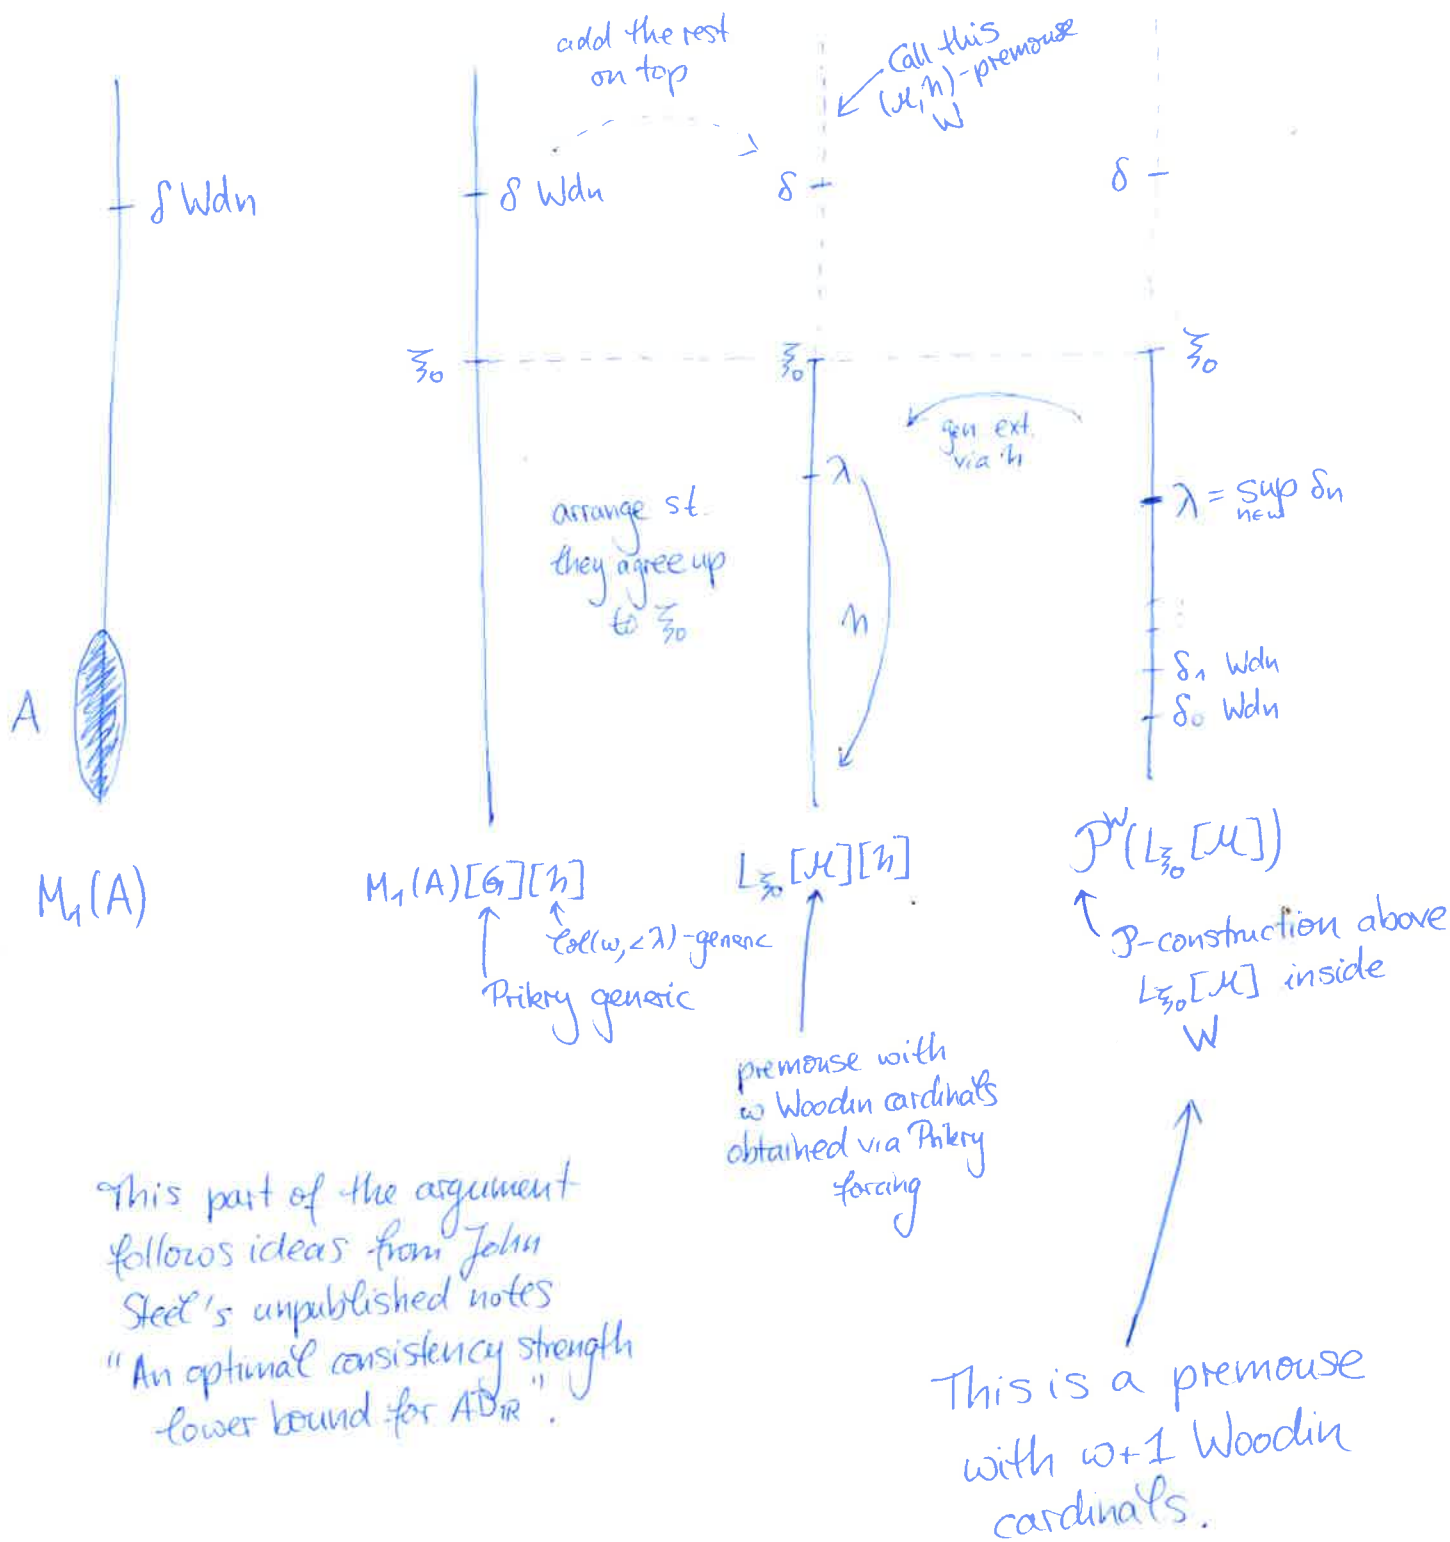 add the rest
on top
Call this
(M,h)-premouse
W
δ Wdn
δ Wdn
δ
δ
ξ₀
ξ₀
ξ₀
gen ext.
via h
λ
λ = sup δn
n∈ω
arrange st.
they agree up
to ξ₀
h
δ₁ Wdn
δ₀ Wdn
A
M₁(A)
M₁(A)[G][h]
L_ξ₀[M][h]
P^W(L_ξ₀[M])
Col(ω,<λ)-generic
Prikry generic
P-construction above
L_ξ₀[M] inside
W
premouse with
ω Woodin cardinals
obtained via Prikry
forcing
This part of the argument
follows ideas from John
Steel's unpublished notes
"An optimal consistency strength
lower bound for AD_ℝ".
This is a premouse
with ω+1 Woodin
cardinals.